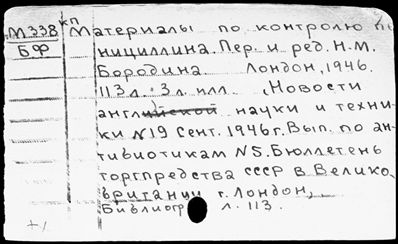 М338 кп Материалы по контролю пе
БФ нициллина. Пер. и ред. Н.М.
Бородина. Лондон, 1946.
113 л. 3 л. илл. (Новости
английской науки и техни-
ки N19 Сент. 1946г. Вып. по ан-
тибиотикам N5. Бюллетень
торгпредства СССР в Велико-
британии г. Лондон,
Библиогр л. 113.